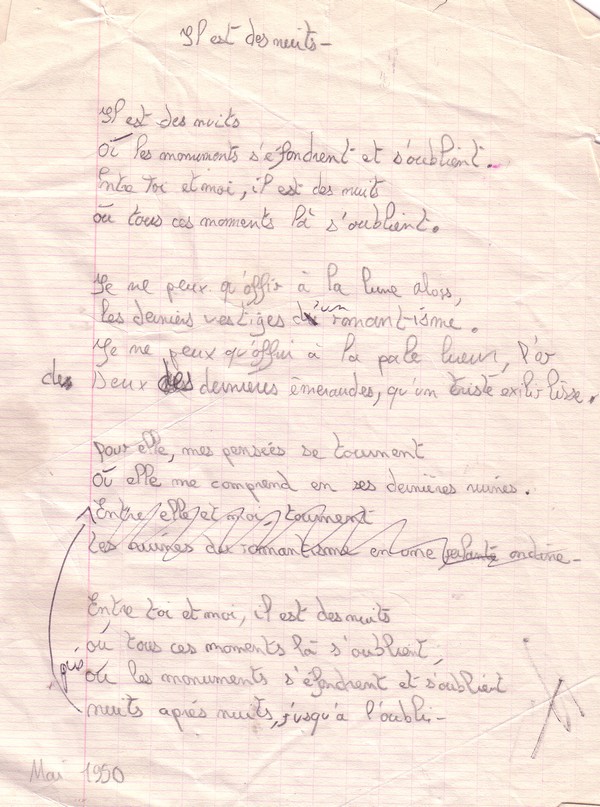 Il est des nuits -
Il est des nuits
Où les monuments s'éfondrent et s'oublient.
Entre toi et moi, il est des nuit
où tous ces moments là s'oublient.
Je ne peux qu'offir à la lune alors,
les derniers vestiges d'un romantisme.
Je ne peux qu'offrir à la pale lueur, d'or
des Deux des dernieres émeraudes, qu'un triste exilir lisse.
pour elle, mes pensées se tournent
Où elle me comprend en ses dernières ruines.
Entre elle et moi, tournent
les ruines du romantisme en une ondine -
Entre toi et moi, il est des nuits
où tous ces moments là s'oublient,
où les monuments s'éfondrent et s'oublient
nuits aprés nuits, jusqu'à l'oubli -
Mai 1990